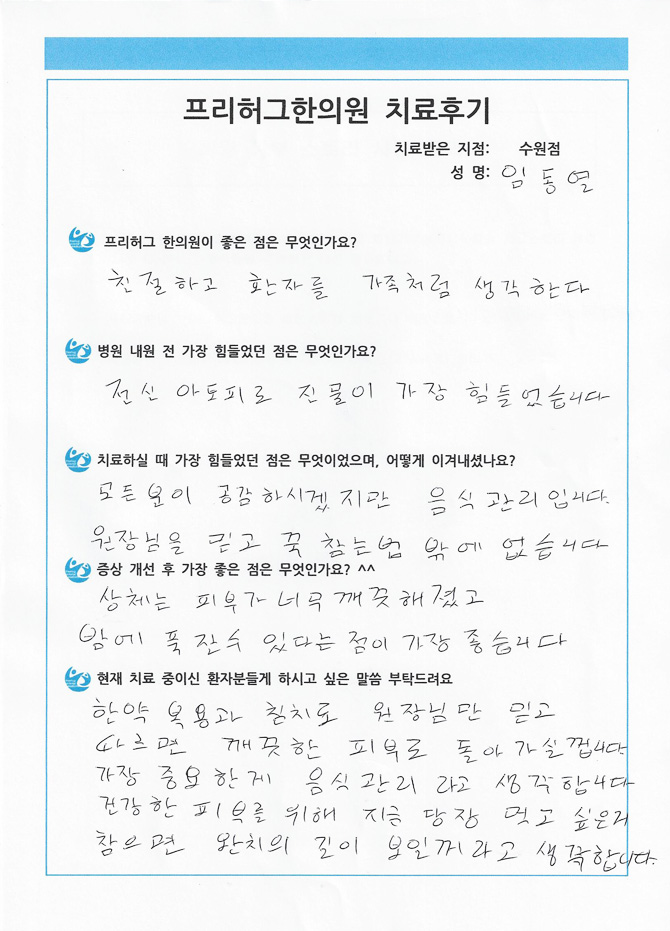 프리허그한의원 치료후기
치료받은 지점: 수원점
성 명: 임동열
프리허그 한의원이 좋은 점은 무엇인가요?
친절하고 환자를 가족처럼 생각한다
병원 내원 전 가장 힘들었던 점은 무엇인가요?
전신 아토피로 진물이 가장 힘들었습니다
치료하실 때 가장 힘들었던 점은 무엇이었으며, 어떻게 이겨내셨나요?
모든분이 공감하시겠지만 음식관리입니다.
원장님을 믿고 꾹 참는법 밖에 없습니다
증상 개선 후 가장 좋은 점은 무엇인가요? ^^
상체는 피부가 너무 깨끗해졌고
밤에 푹 잔수 있다는 점이 가장 좋습니다
현재 치료 중이신 환자분들게 하시고 싶은 말씀 부탁드려요
한약 복용과 침치료 원장님만 믿고
따르면 깨끗한 피부로 돌아가실껍니다.
가장 중요한게 음식관리 라고 생각합니다
건강한 피부를 위해 지금 당장 먹고 싶은거
참으면 완치의 길이 보일꺼라고 생각합니다.